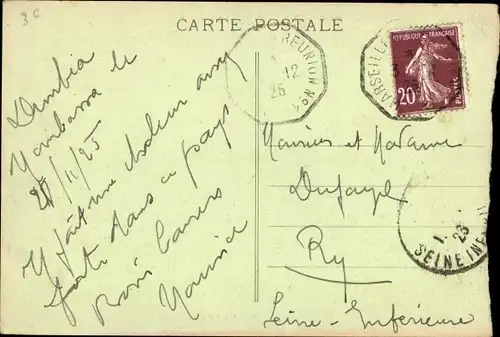 3€
CARTE POSTALE
REUNION No 1
12
26
MARSEILLE
REPUBLIQUE FRANÇAISE
20c
POSTES
Mombassa le
27/11/25
Il fait une chaleur assez
forte dans ce pays
Bons baisers
Maurice
Monsieur et Madame
Dufayel
Ry
Seine-Inférieure
SEINE INF